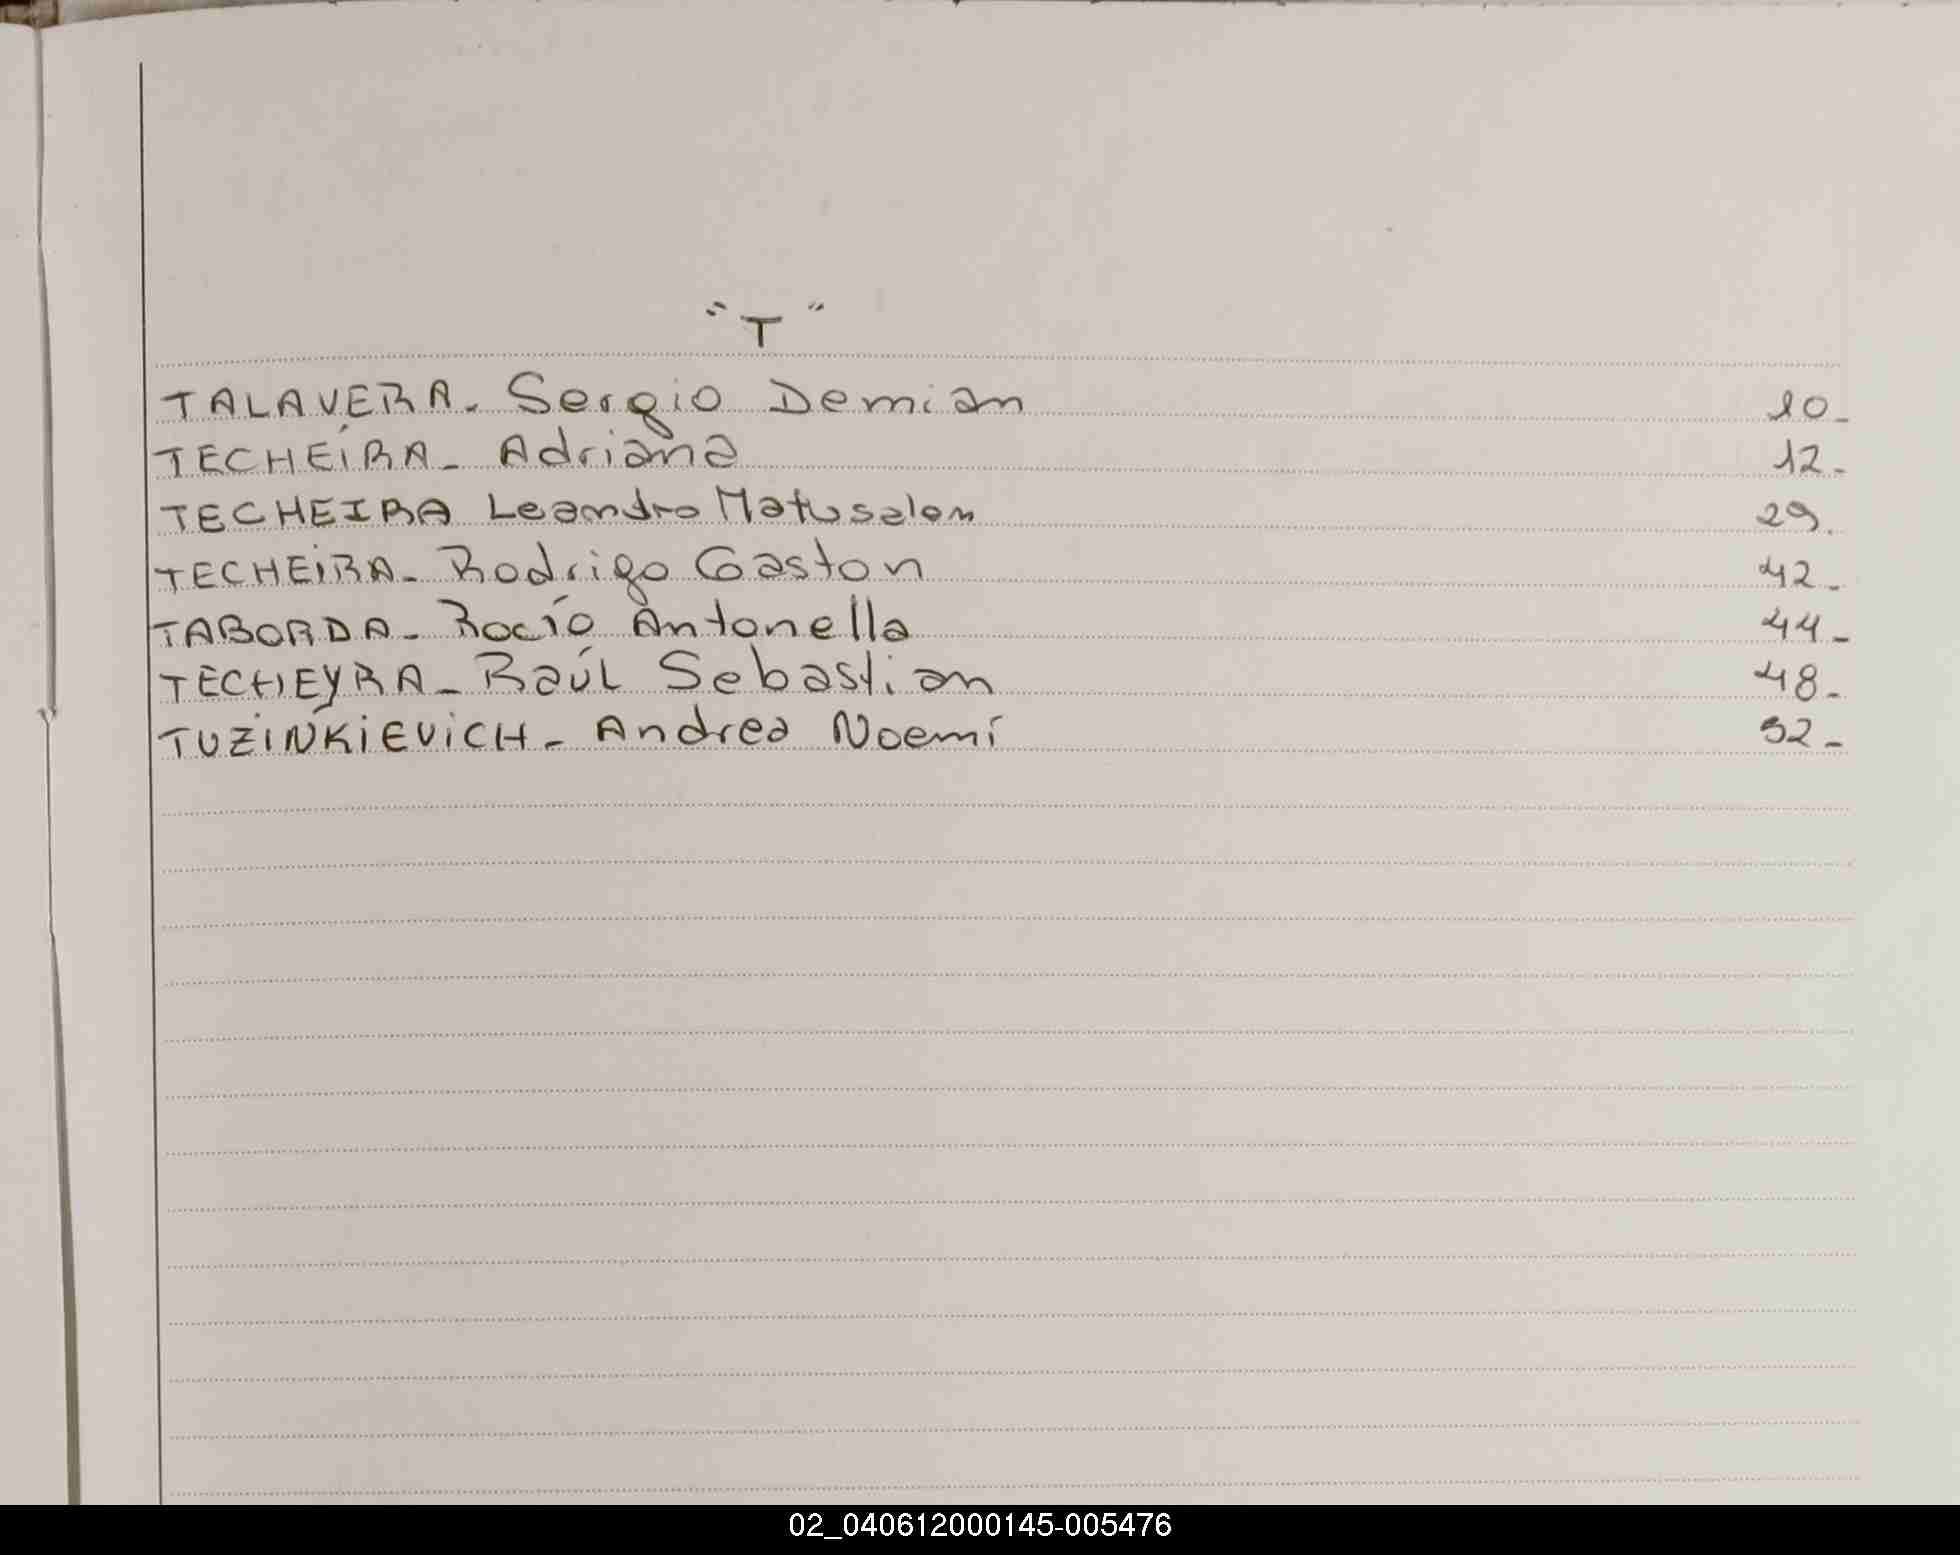 "T"
TALAVERA. Sergio Demian 10-
TECHEIRA- Adriana 12-
TECHEIRA Leandro Matusalen 29.
TECHEIRA- Rodrigo Gaston 42-
TABORDA- Rocío Antonella 44-
TECHEYRA- Raúl Sebastian 48-
TUZINKIEVICH- Andrea Noemí 52-
02_040612000145-005476